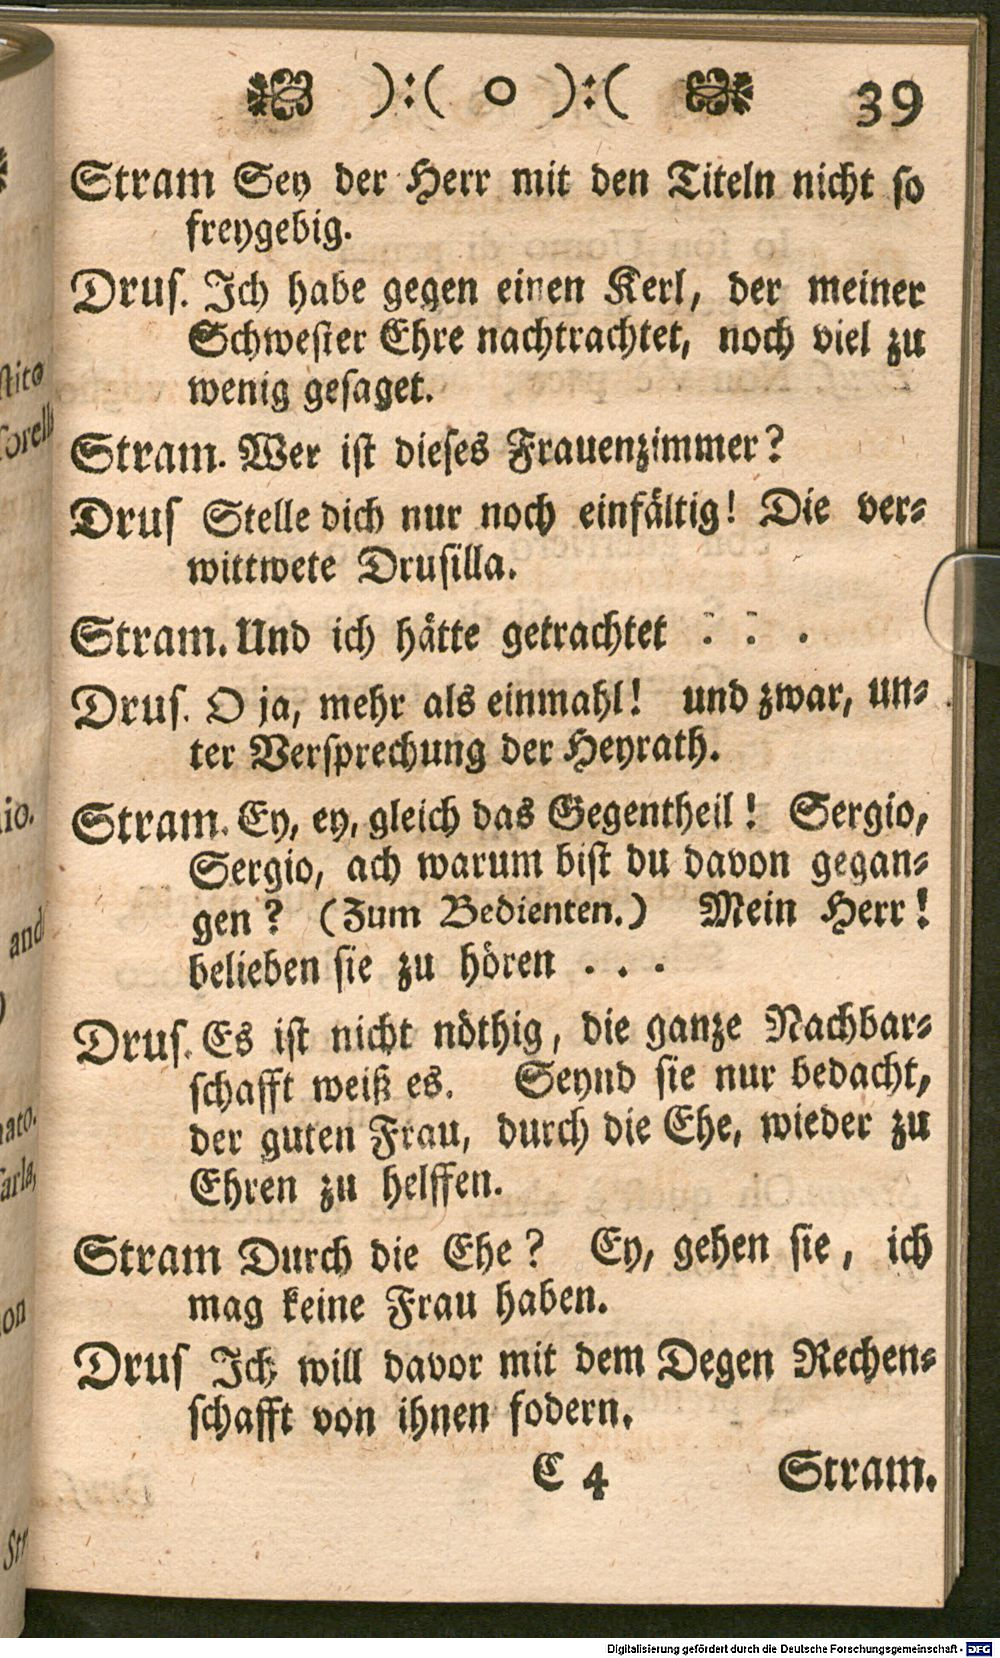 ):( o ):( 39
Stram Sey der Herr mit den Titeln nicht so
freygebig.
Drus. Ich habe gegen einen Kerl, der meiner
Schwester Ehre nachtrachtet, noch viel zu
wenig gesaget.
Stram. Wer ist dieses Frauenzimmer?
Drus Stelle dich nur noch einfältig! Die ver-
wittwete Drusilla.
Stram. Und ich hätte getrachtet - - -
Drus. O ja, mehr als einmahl! und zwar, un-
ter Versprechung der Heyrath.
Stram. Ey, ey, gleich das Gegentheil! Sergio,
Sergio, ach warum bist du davon gegan-
gen? (Zum Bedienten.) Mein Herr!
belieben sie zu hören . . .
Drus. Es ist nicht nöthig, die ganze Nachbar-
schafft weiß es. Seynd sie nur bedacht,
der guten Frau, durch die Ehe, wieder zu
Ehren zu helffen.
Stram Durch die Ehe? Ey, gehen sie, ich
mag keine Frau haben.
Drus Ich will davor mit dem Degen Rechen-
schafft von ihnen fodern.
C 4 Stram.
Digitalisierung gefördert durch die Deutsche Forschungsgemeinschaft - DFG